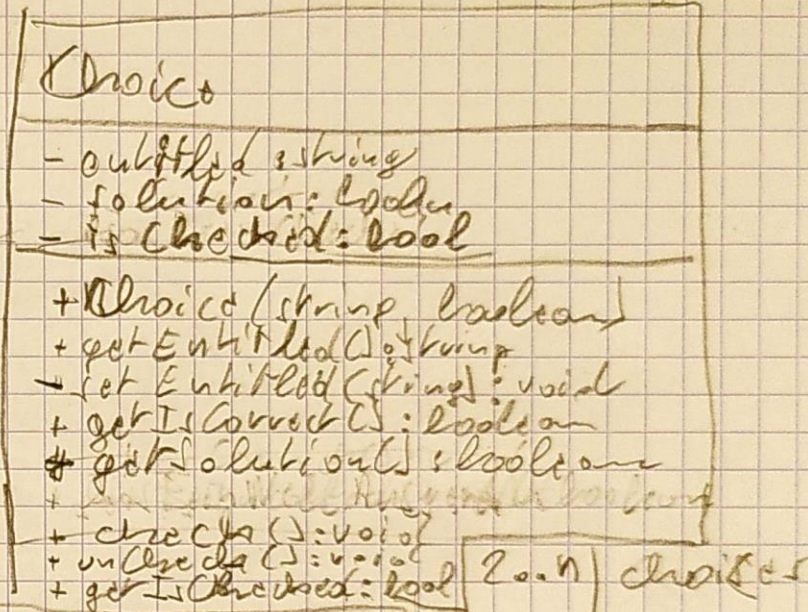 Choice
- entitled : string
- solution : boolean
- is Checked : bool
+ Choice (string, boolean)
+ getEntitled() : string
- setEntitled(string) : void
+ getIsCorrect() : boolean
# getSolution() : boolean
+ boolean
+ check() : void
+ unCheck() : void
+ getIsChecked : bool
2..n choices